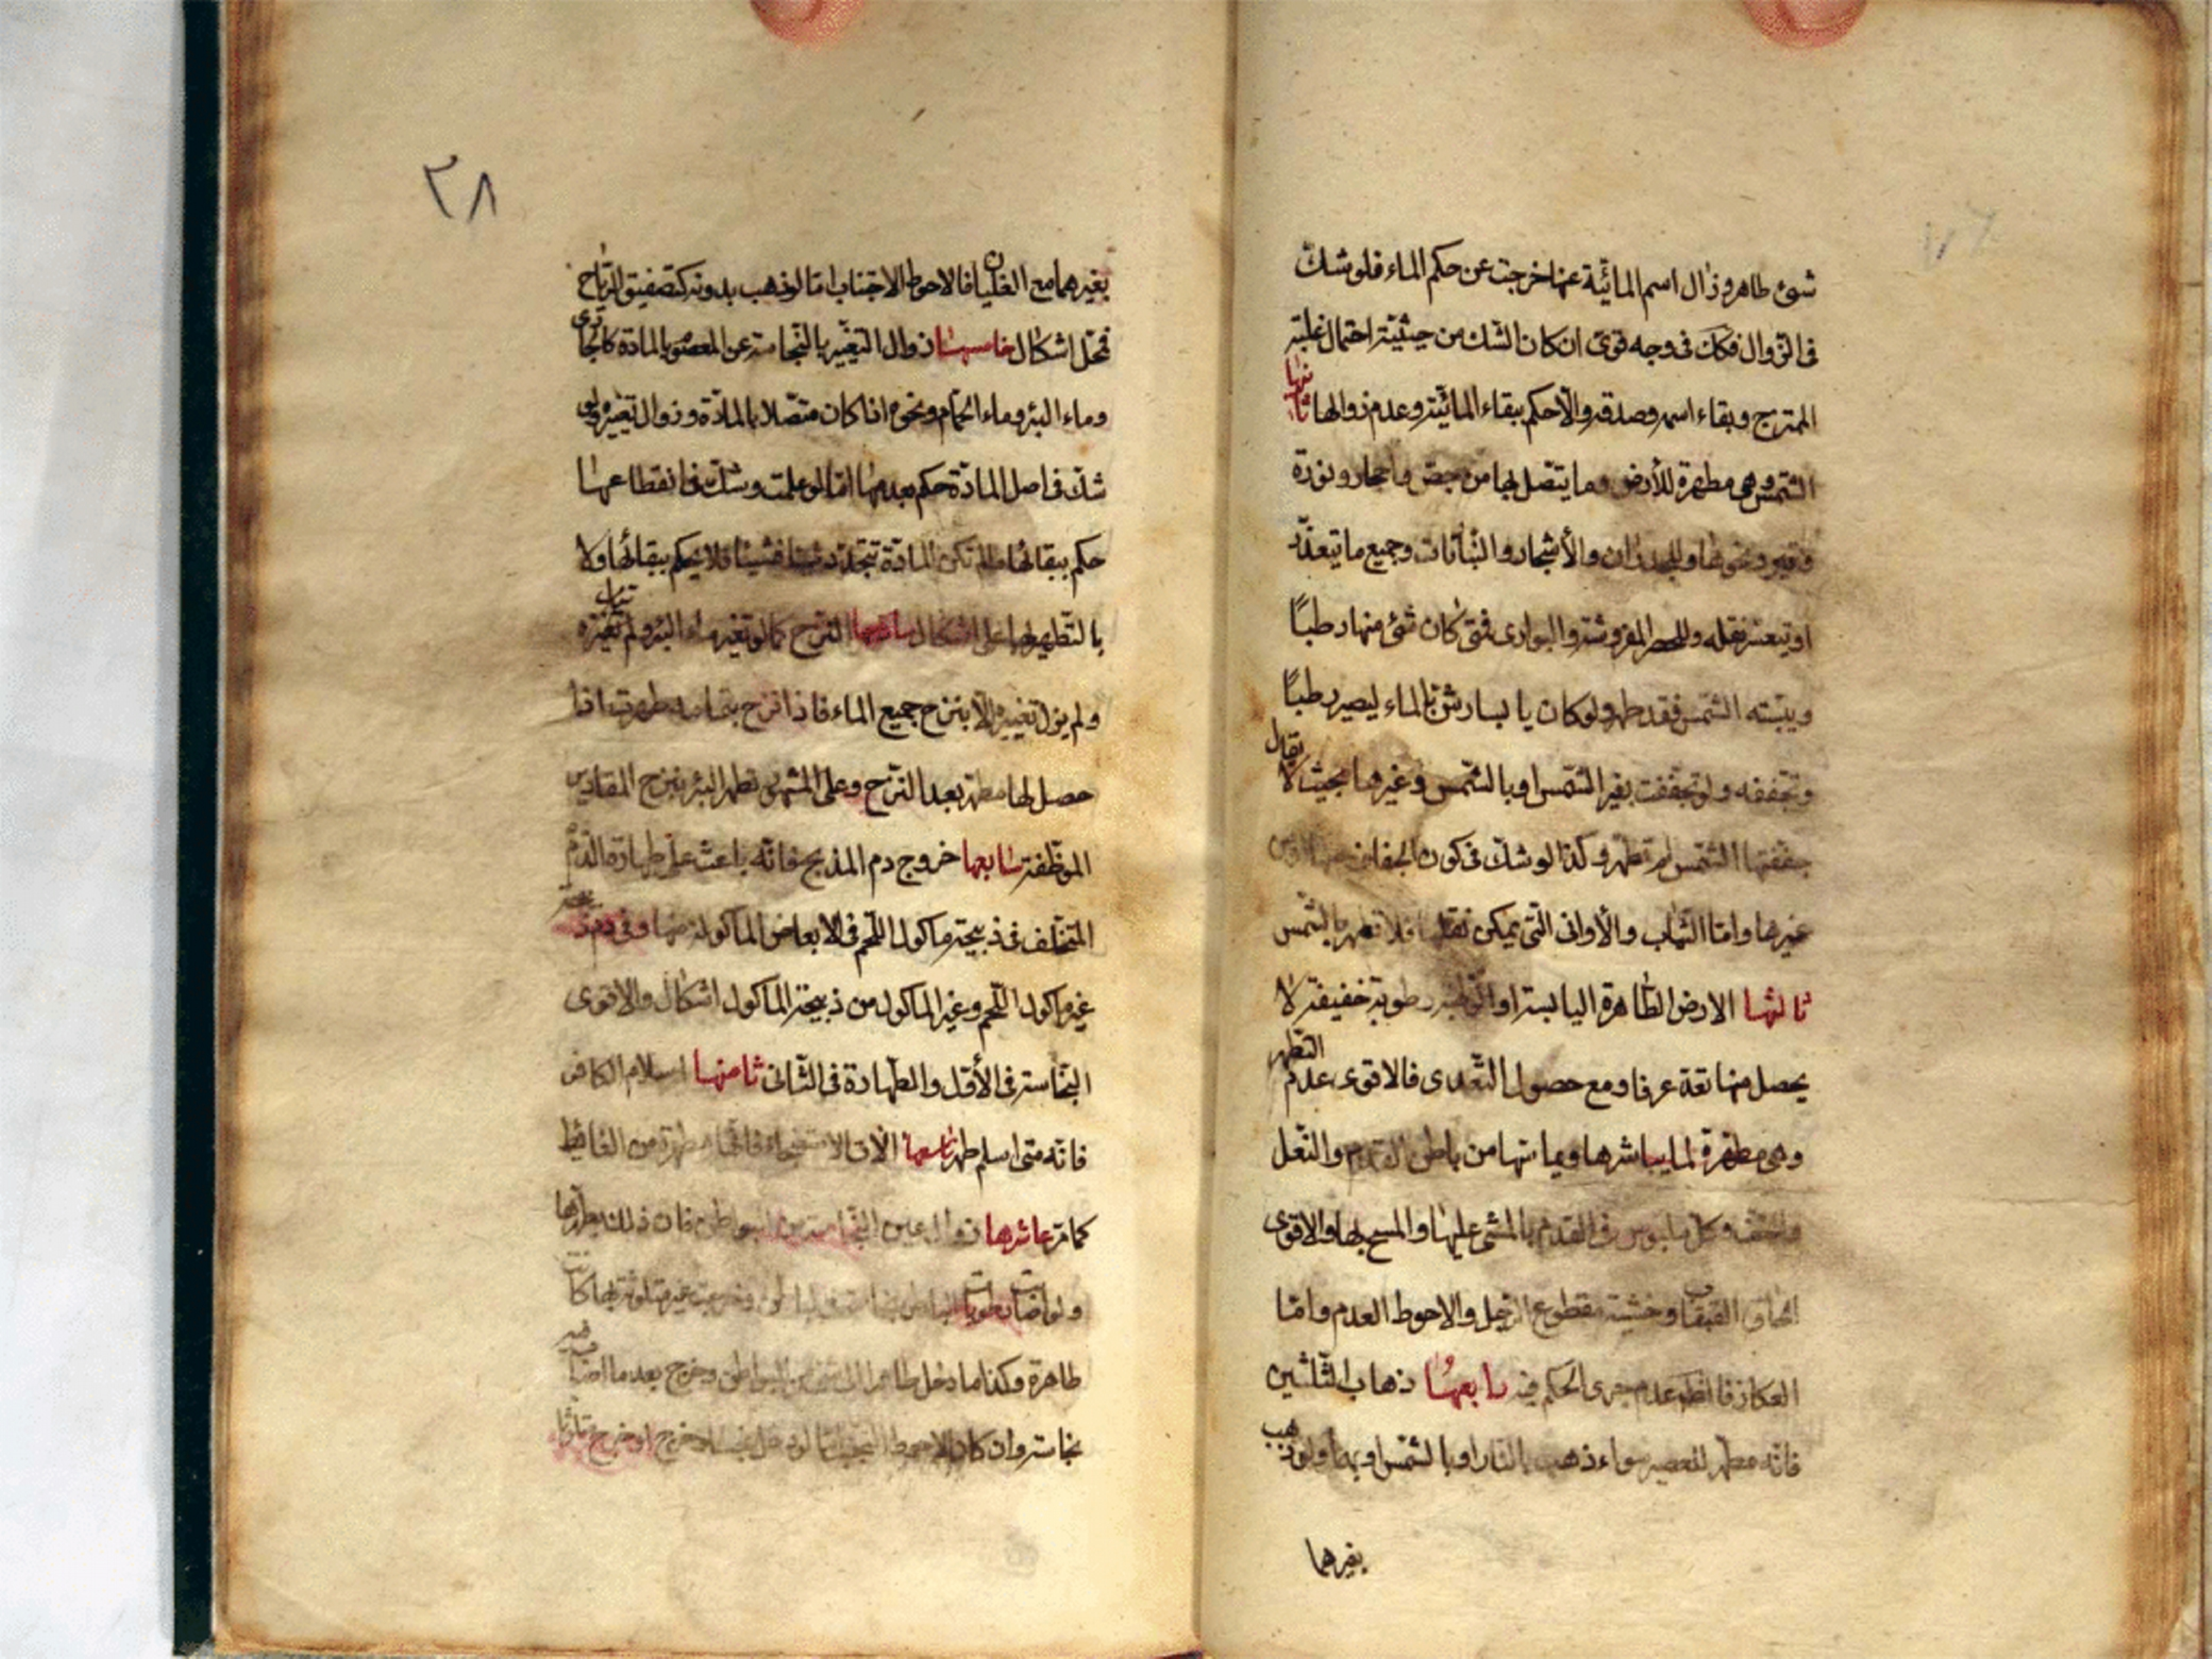 شئ طاهر وزال اسم المائية عنها خرجت عن حكم الماء فلو شك
فى الزوال فكك فى وجه قوى ان كان الشك من حيثية احتمال غلبة
الممتزج وبقاء اسمه وصدقه والا حكم ببقاء المائية وعدم زوالها ثانيها
الشمس وهى مطهرة للأرض وما يتصل بها من جص واحجار ونورة
وقير ونحوها وللجدران والأشجار والنباتات وجميع ما يتعذر
او يتعسر نقله وللحصر المفروشة والبوارى فمتى كان شئ منها رطبًا
ويبسته الشمس فقد طهر ولو كان يابسا رش بالماء ليصير رطبًا
وتجففه ولو تجففت بغير الشمس او بالشمس وغيرها بحيث لا يقال
جففتها الشمس لم تطهر وكذا لو شك فى كون الجفاف منها او من
غيرها واما الثياب والأوانى التى يمكن نقلها فلا تطهر بالشمس
ثالثها الارض الطاهرة اليابسة او الرطبة رطوبة خفيفة لا
يحصل منها تعد عرفا ومع حصول التعدى فالاقوى عدم التطهر
وهى مطهرة لما يباشرها ويماسها من باطن القدم والنعل
والخف وكل ملبوس فى القدم بالمشى عليها والمسح بها والاقوى
الحاق القبقاب وخشبة مقطوع الرجل والاحوط العدم واما
العكاز فالظ عدم جرى الحكم فيه رابعها ذهاب الثلثين
فانه مطهر للعصير سواء ذهب بالنار او بالشمس او بهما ولو ذهب
بغيرهما
٢٨
بغيرهما مع الغليان فالاحوط الاجتناب اما لو ذهب بدونه كتصفيق الرياح
فمحل اشكال خامسها زوال التغير بالنجاسة عن المعصوم بالمادة كالجارى
وماء البئر وماء الحمام ونحوه اذا كان متصلا بالمادة وزوال تغيره ولو
شك فى اصل المادة حكم بعدمها اما لو علمت وشك فى انقطاعها
حكم ببقائها ما لم تكن المادة تتجدد شيئا فشيئا فلا يحكم ببقائها ولا
بالتطهير بها على اشكال سادسها النزح كما لو تغير ماء البئر ولم
ولم يزل تغييره الا بنزح جميع الماء فاذا نزح بتمامه طهرت اذا
حصل لها مطهر بعد النزح وعلى المشهور تطهر البئر بنزح المقادير
الموظفة سابعها خروج دم المذبح فانه باعث على طهارة الدم
المتخلف فى ذبيحة ماكول اللحم فى الابعاض الماكولة منها وفى دم ذبيحة
غير ماكول اللحم وغير الماكول من ذبيحة الماكول اشكال والاقوى
النجاسة فى الأول والطهارة فى الثانى ثامنها اسلام الكافر
فانه متى اسلم طهر تاسعها الات الاستنجاء فانها مطهرة من الغايط
كما مر عاشرها زوال عين النجاسة من البواطن فان ذلك يطهرها
طاهرة وكذا ما دخل طاهرا من البواطن وخرج بعد ما اصاب
نجاسة وان كان الاحوط